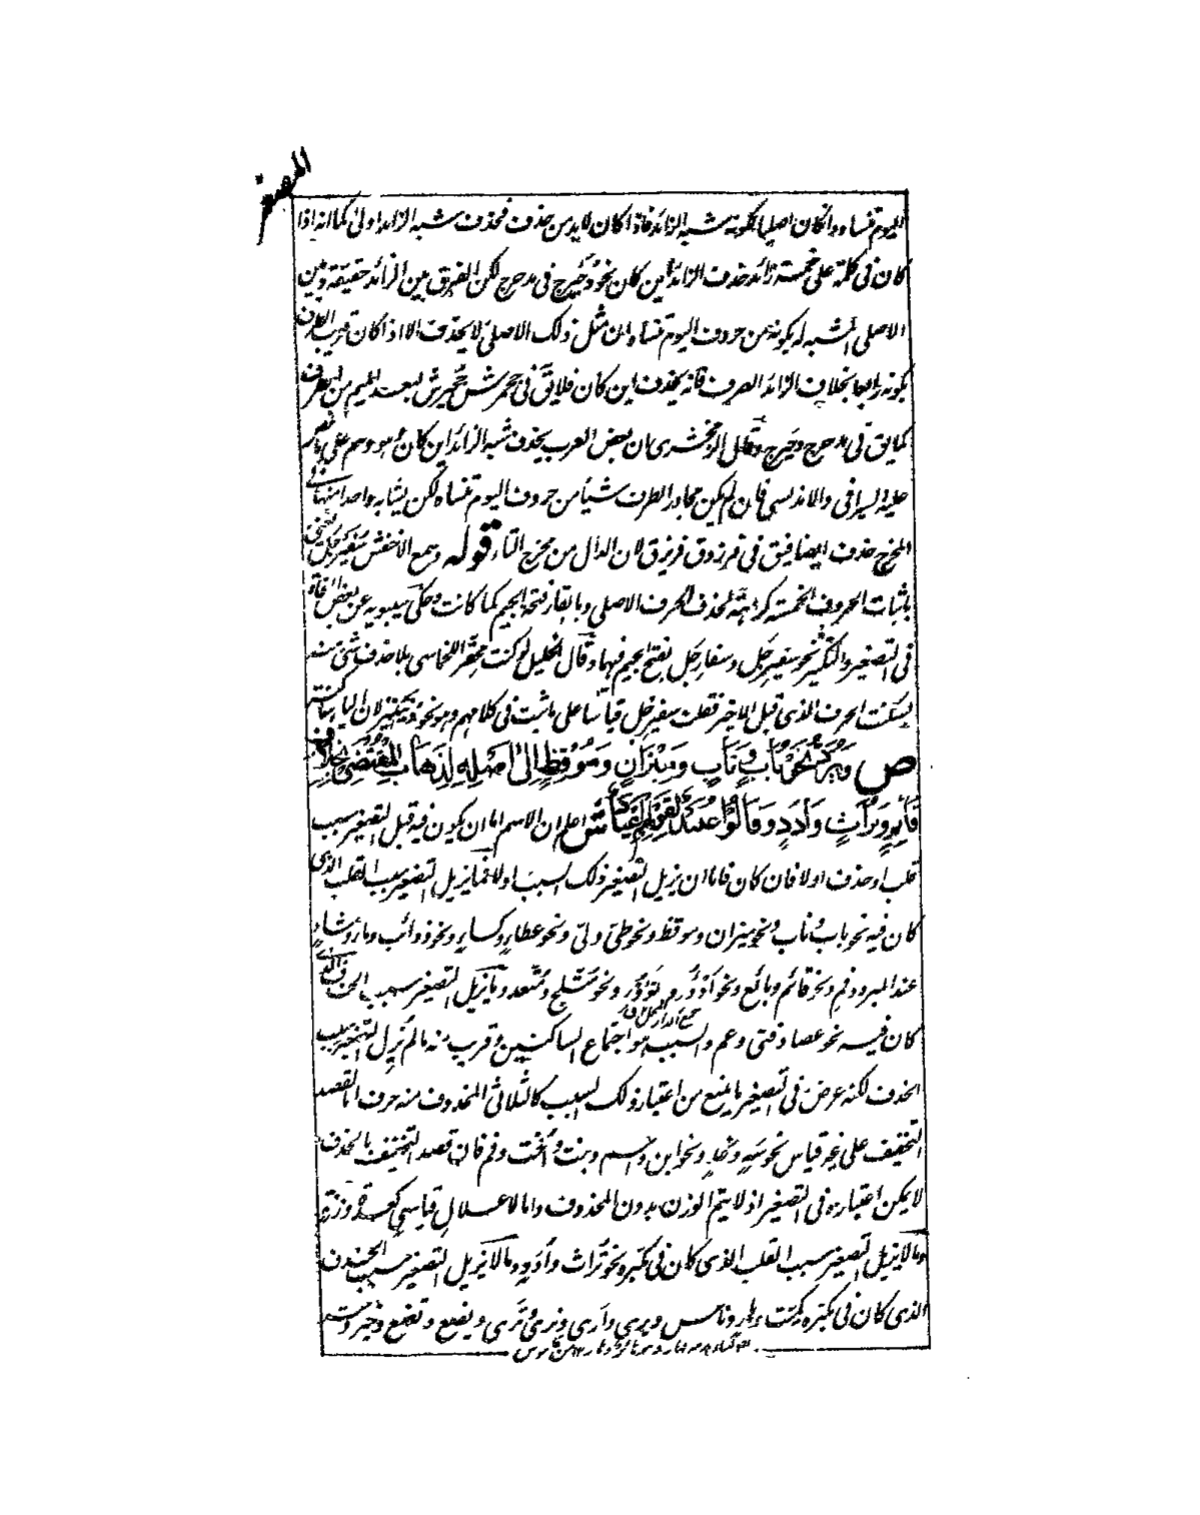 المصغر
اليوم تنساه وان كان اصليا لكونه شبه الزائد فاذا كان لا بد من حذف فحذف شبه الزائد اولى كما انه اذا
كان فى كلمة على خمسة زائد حذف الزائد اين كان نحو دحيرج فى مدحرج لكن الفرق بين الزائد حقيقة وبين
الاصلى المشبه له بكونه من حروف اليوم تنساه ان مثل ذلك الاصلى لا يحذف الا اذا كان قريب الطرف
بكونه رابعا بخلاف الزائد الصرف فانه يحذف اين كان فلا يق فى جحمرش جحيرش لبعد الميم من الطرف
كما يق فى مدحرج دحيرج وقال الزمخشرى ان بعض العرب يحذف شبه الزائد اين كان وهو وهم على ما نص
عليه السيرافى والاندلسى فان لم يكن مجاور الطرف شيئا من حروف اليوم تنساه لكن يشابه واحدا منها فى
المخرج حذف ايضا فيق فى فرزدق فريزق لان الدال من مخرج التاء قوله وسمع الاخفش سفيرجل يعنى
باثبات الحروف الخمسة كراهة لحذف الحرف الاصلى وبابقاء فتحة الجيم كما كانت وحكى سيبويه عن بعض النحاة
فى التصغير والتكسير نحو سفيرجل وسفارجل بفتح الجيم فيهما وقال الخليل لو كنت محقرا للخماسى بلا حذف شئ منه
لسكنت الحرف الذى قبل الاخير فقلت سفيرجل قياسا على ما ثبت فى كلامهم وهو نحو دنينير لان الياء ساكنة
ص ويرد نحو باب وناب وميزان وموقظ الى اصله لذهاب المقتضى بخلاف
قائم وتراث وادد وقالوا عييد لقولهم اعياد ش اعلم ان الاسم اما ان يكون فيه قبل التصغير سبب
قلب او حذف اولا فان كان فاما ان يزيل التصغير ذلك السبب اولا فما يزيل التصغير سبب القلب الذى
كان فيه نحو باب وناب ونحو ميزان وموقظ ونحو طى ولى ونحو عطاء وكساء ونحو ذوائب وماء وشاء
عند المبرد وفم ونحو قائم وبائع ونحو ادؤر ونؤر ونحو متلج ومتعد وما يزيل التصغير سبب الحذف الذى
جمع الدار
كان فيه نحو عصا وفتى وعم والسبب هو اجتماع الساكنين وقريب منه ما لم يزل التصغير سبب
الحذف لكنه عرض فى التصغير ما يمنع من اعتبار ذلك السبب كالثلاثى المحذوف منه حرف اما لقصد
التخفيف على غير قياس نحو سنة وغد ونحو ابن واسم وبنت واخت وفم فان قصد التخفيف بالحذف
لا يمكن اعتباره فى التصغير اذ لا يتم الوزن بدون المحذوف واما لاعلال قياسى كعدة وزنة
وما لا يزيل التصغير سبب القلب الذى كان فى مكبره نحو تراث وادد وما لا يزيل التصغير سبب الحذف
الذى كان فى مكبره كميت وهار وناس ويرى وارى ونرى وترى ويضع وتضع وخير وشر